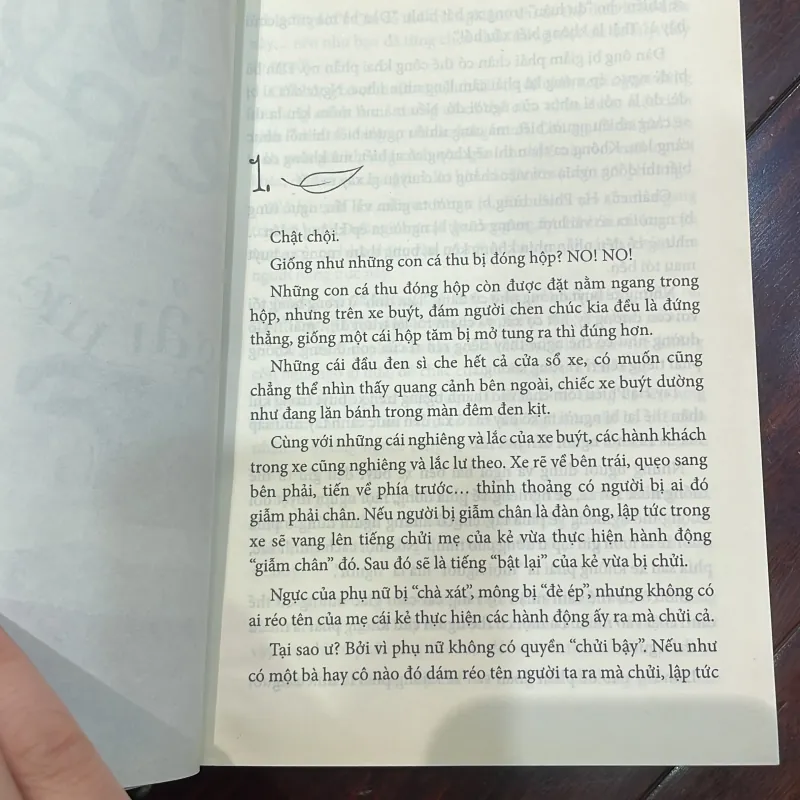 1.
Chật chội.
Giống như những con cá thu bị đóng hộp? NO! NO!
Những con cá thu đóng hộp còn được đặt nằm ngang trong
hộp, nhưng trên xe buýt, đám người chen chúc kia đều là đứng
thẳng, giống một cái hộp tăm bị mở tung ra thì đúng hơn.
Những cái đầu đen sì che hết cả cửa sổ xe, có muốn cũng
chẳng thể nhìn thấy quang cảnh bên ngoài, chiếc xe buýt dường
như đang lăn bánh trong màn đêm đen kịt.
Cùng với những cái nghiêng và lắc của xe buýt, các hành khách
trong xe cũng nghiêng và lắc lư theo. Xe rẽ về bên trái, quẹo sang
bên phải, tiến về phía trước… thỉnh thoảng có người bị ai đó
giẫm phải chân. Nếu người bị giẫm chân là đàn ông, lập tức trong
xe sẽ vang lên tiếng chửi mẹ của kẻ vừa thực hiện hành động
“giẫm chân” đó. Sau đó sẽ là tiếng “bật lại” của kẻ vừa bị chửi.
Ngực của phụ nữ bị “chà xát”, mông bị “đè ép”, nhưng không có
ai réo tên của mẹ cái kẻ thực hiện các hành động ấy ra mà chửi cả.
Tại sao ư? Bởi vì phụ nữ không có quyền “chửi bậy”. Nếu như
có một bà hay cô nào đó dám réo tên người ta ra mà chửi, lập tức